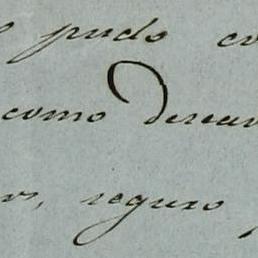 pudo co
como desear
os, seguro